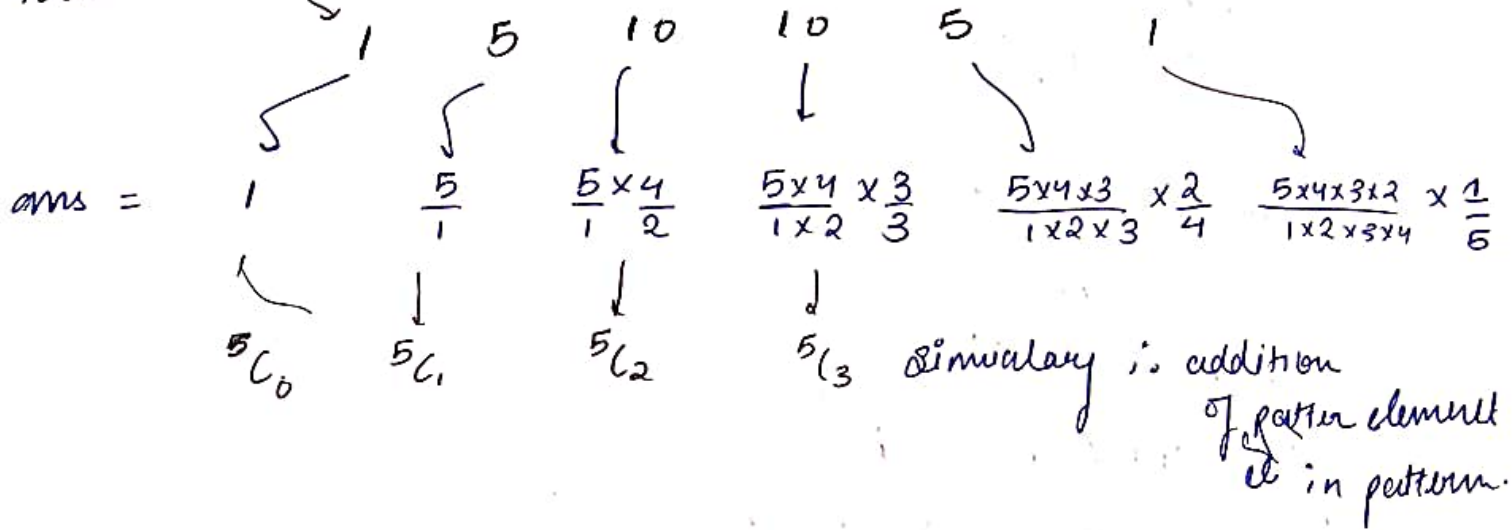 1 5 10 10 5 1
ans = 1 5/1 5/1 × 4/2 5×4/1×2 × 3/3 5×4×3/1×2×3 × 2/4 5×4×3×2/1×2×3×4 × 1/5
⁵C₀ ⁵C₁ ⁵C₂ ⁵C₃ addition
of element
in pattern.